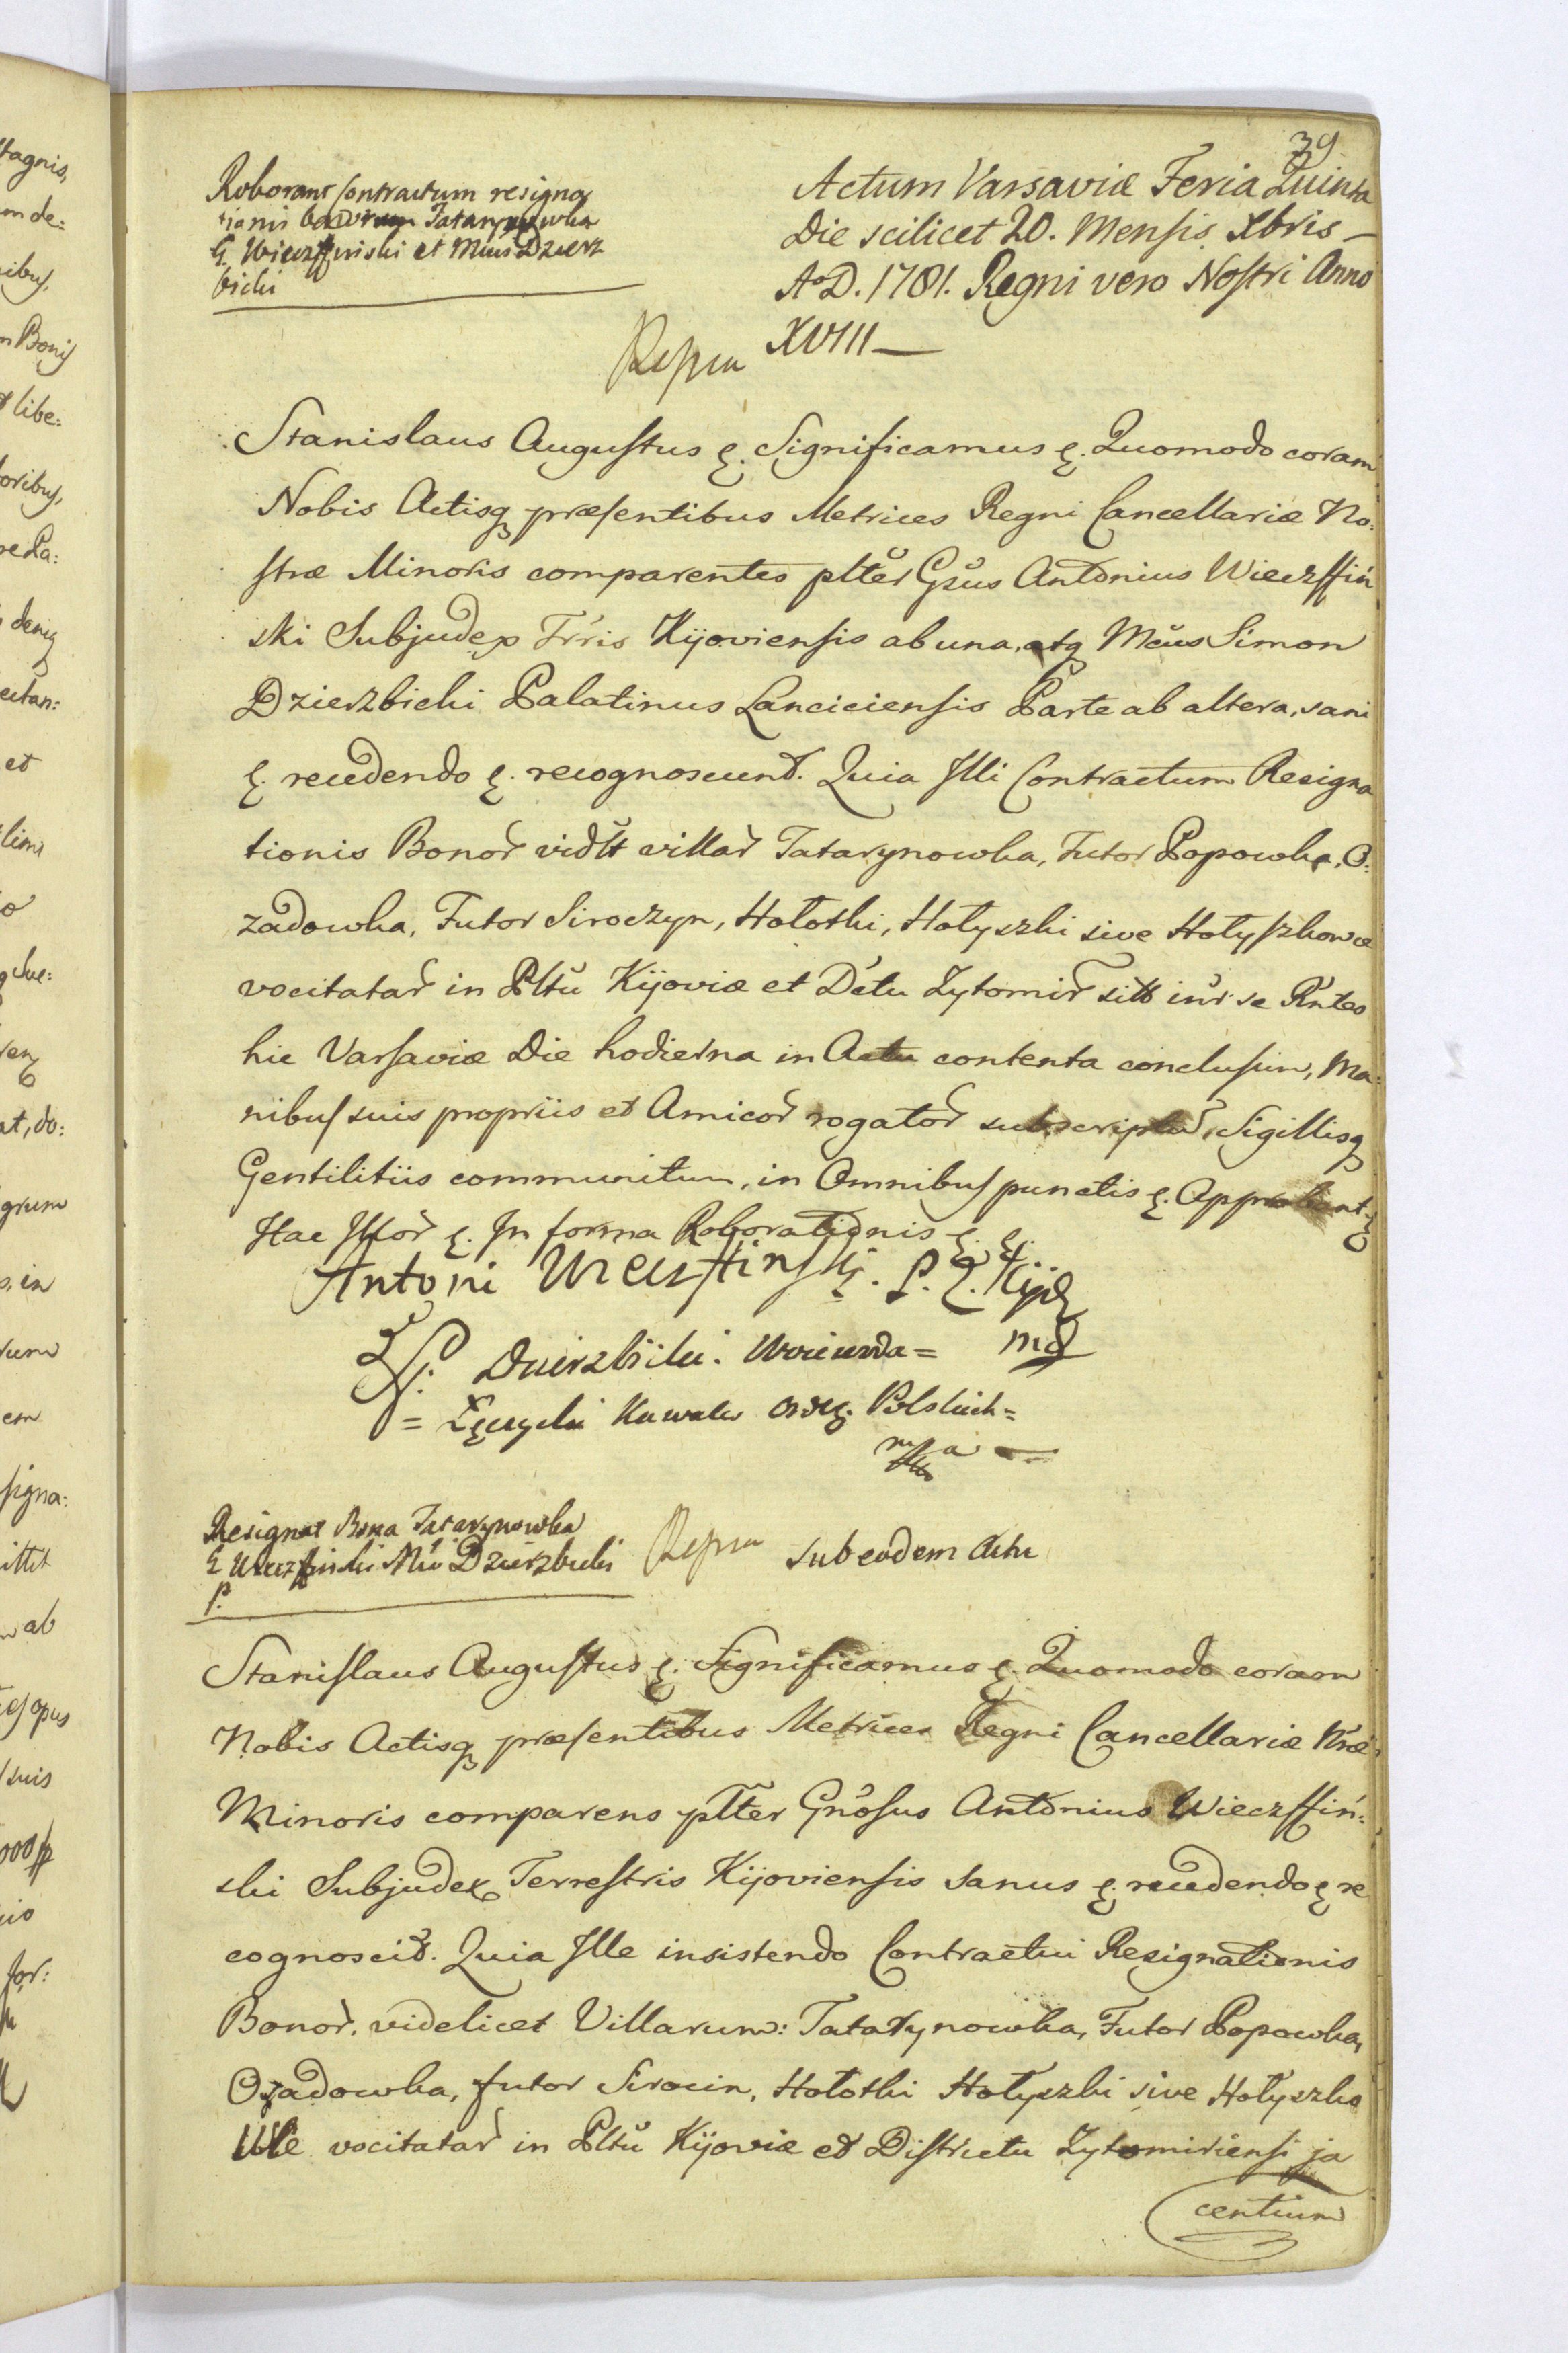 39
Roborant Contractum resigna
tionis bonorum Tatarynowka
G. Wieczffinski et Mcus Dzierz
bicki
Actum Varsaviæ Feria Quinta
Die scilicet 20. Mensis Xbris
AoD. 1781. Regni vero Nostri Anno
XVIII
Stanislaus Augustus &. Significamus &. Quomodo coram
Nobis Actisq præsentibus Metrices Regni Cancellariæ No:
stræ Minoris comparentes plter Gsus Antonius Wieczffiń
ski Subjudex Trris Kijoviensis ab una, atq Mcus Simon
Dzierzbicki Palatinus Lanciciensis Parte ab altera, sani
&. recedendo &. recognoscunt. Quia Illi Contractum Resigna
tionis Bonor vidtt villar Tatarynowka, Futor Popowka, O:
zadowka, Futor Siroczyn, Hołotki, Hołyszki sive Hołyszkowce
vocitatar in Pltu Kijoviæ et Dctu Zytomir sitt intr se Rntes
hic Varsaviæ Die hodierna in Actu contenta conclusum, Ma:
nibus suis propriis et Amicor rogator subscriptu, Sigillisq
Gentilitiis communitum, in Omnibus punctis &. Approbant &
Hac Illor &. In forma Roborationis &. &.
Antoni Wieczffinski. P. Z. Kijo
mp
S: Dzierzbicki. Woiewoda =
= Łęczycki Kawaler Orde. Polskich =
mppa
Resignat Bona Tatarynowka
G Wieczffinski Mco Dzierzbicki
P.
sub eodem Actu
Stanislaus Augustus &. Significamus &. Quomodo coram
Nobis Actisq præsentibus Metrices Regni Cancellariæ Nræ
Minoris comparens plter Gnosus Antonius Wieczffiń:
ski Subjudex Terrestris Kijoviensis sanus &. recedendo & re
cognoscit. Quia Ille insistendo Contractui Resignationis
Bonor. videlicet Villarum: Tatarynowka, Futor Popowka,
Ozadowka, futor Sirocin, Hołotki Hołyszki sive Hołyszko
wce vocitatar in Pltu Kijoviæ et Districtu Zytomiriensi ja
centium
tagnis,
m de:
ibus,
m Bonis
libe:
oribus,
et
grum
em
signa:
ab
opus
suis
for: